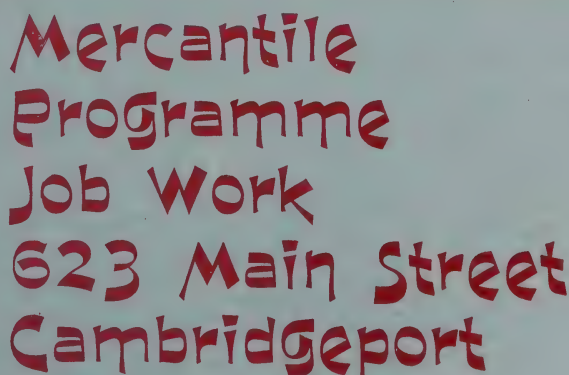 Mercantile
Programme
Job Work
623 Main Street
Cambridgeport